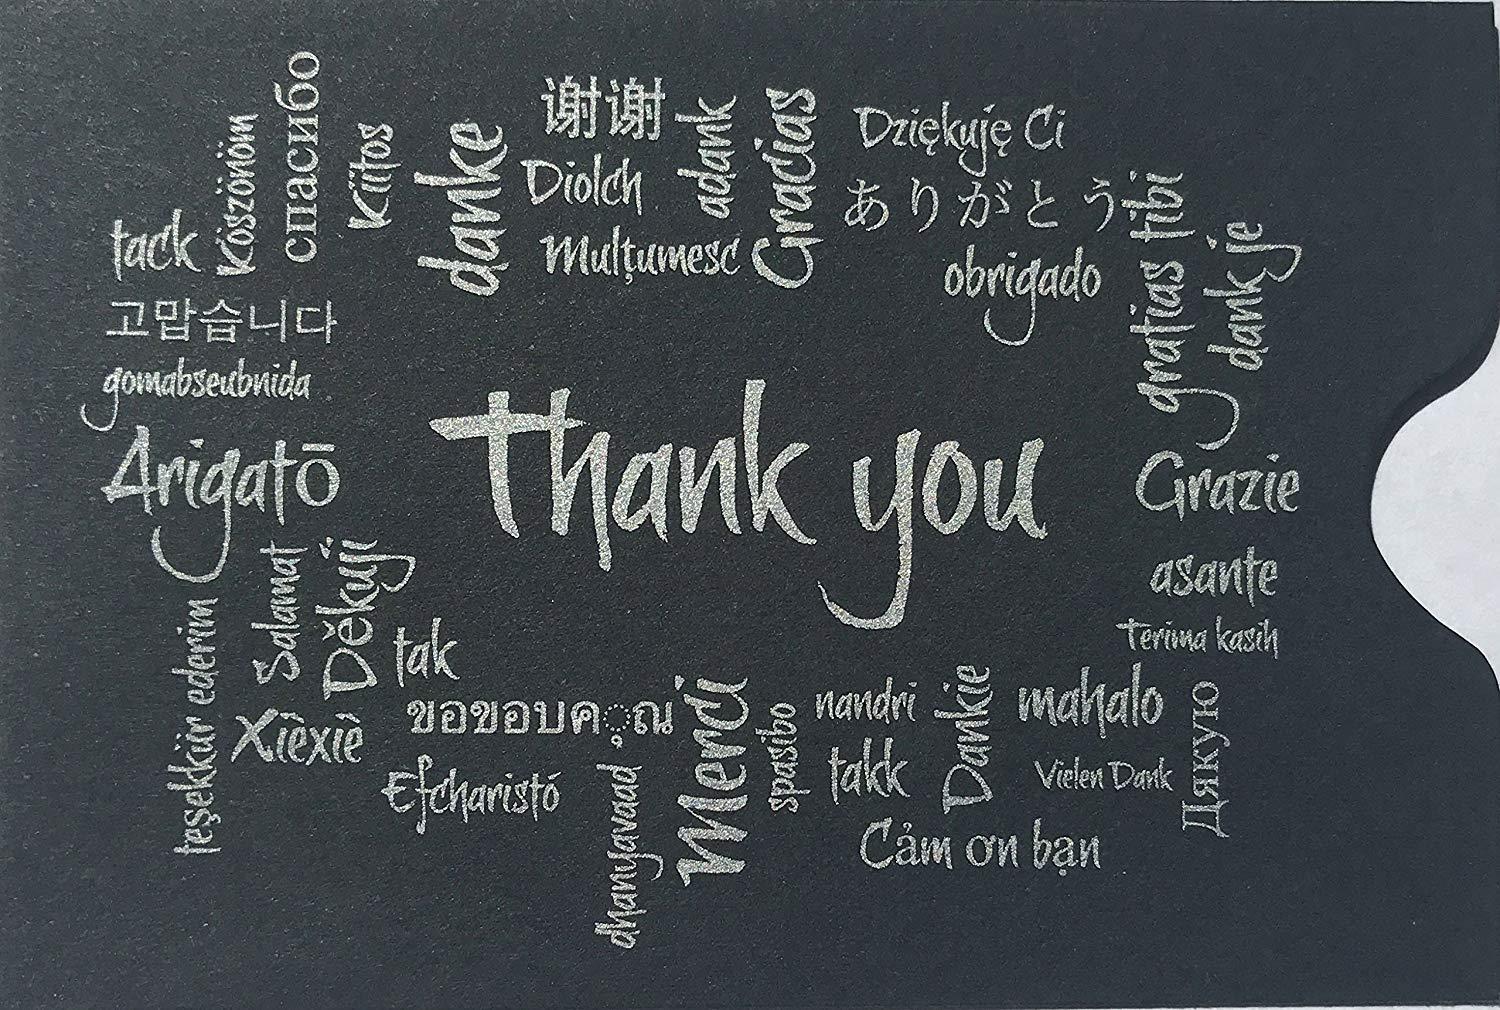 tack
Köszönöm
спасибо
Kiitos
danke
谢谢
Diolch
Mulțumesc
adank
Gracias
Dziękuję Ci
ありがとう
obrigado
gratias tibi
dank je
고맙습니다
gomabseubnida
Arigatō
Thank you
Grazie
asante
Terima kasih
teşekkür ederim
Salamat
Děkuji
tak
Xièxiè
ขอขอบคุณ
Efcharistó
dhanyavaad
Merci
spasibo
nandri
takk
Dankie
mahalo
Vielen Dank
Дякую
Cảm ơn bạn